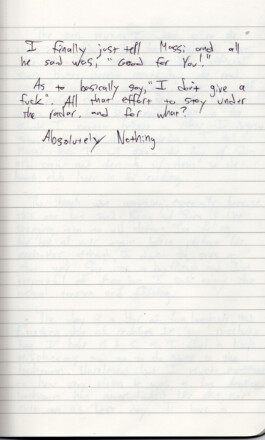 I finally just tell Massi and all
he said was, "Good for You!"
As to basically say, "I don't give a
fuck". All that effort to stay under
the radar, and for what?
Absolutely Nothing